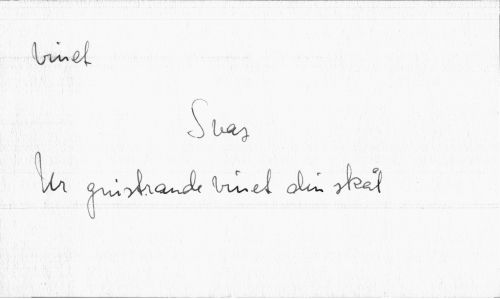 vinet
Svaz
Ur gnistrande vinet din skål